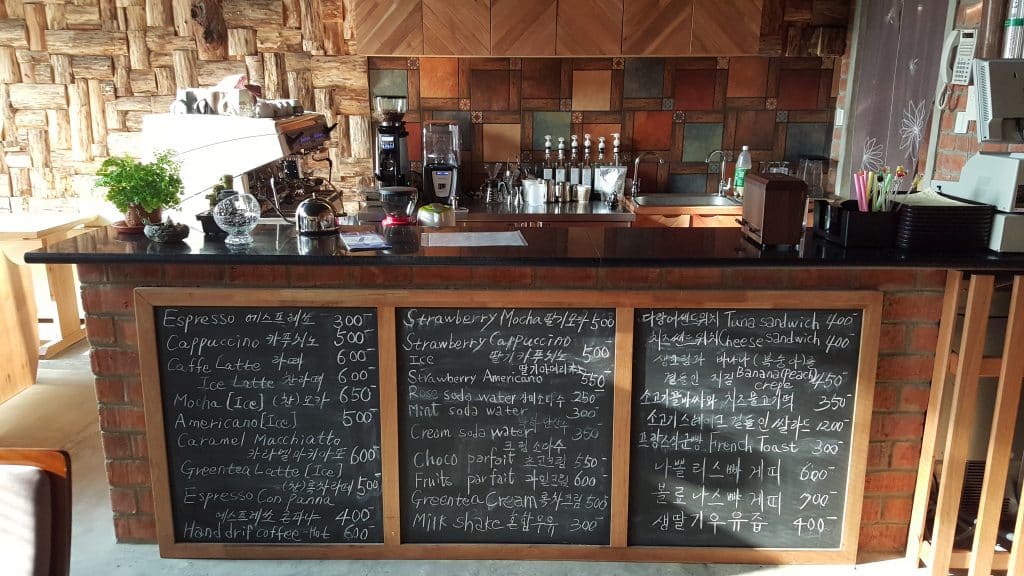 Espresso 에스프레쏘 300-
Cappuccino 카푸치노 500-
Caffe Latte 라떼 600-
Ice Latte 찬라떼 600-
Mocha [Ice] (찬)모카 650
Americano [Ice] 500-
Caramel Macchiatto
카라멜마키아또 600-
Greentea Latte [Ice]
(찬)록차라떼 500
Espresso Con panna
에스프레쏘 콘파나 400-
Hand drif coffee Hot 600
Strawberry Mocha 딸기모카 500
Strawberry Cappuccino
Ice 딸기카푸치노 500
Strawberry Americano 550-
Rose soda water 250
Mint soda water 300-
Cream soda water 350
크림소다수
Choco parfait 쵸코크림 550-
Fruits parfait 과일크림 600-
Greentea Cream 록차크림 500
Milk shake 혼합우유 300-
Tuna sandwich 400-
Cheese sandwich 400
생크림과 바나나(복숭아)를
Banana(Peach)
crepe 450
350-
1200-
French Toast 300
나뽈리스빠게띠 600-
볼로냐스빠게띠 700-
생딸기우유즙 400-